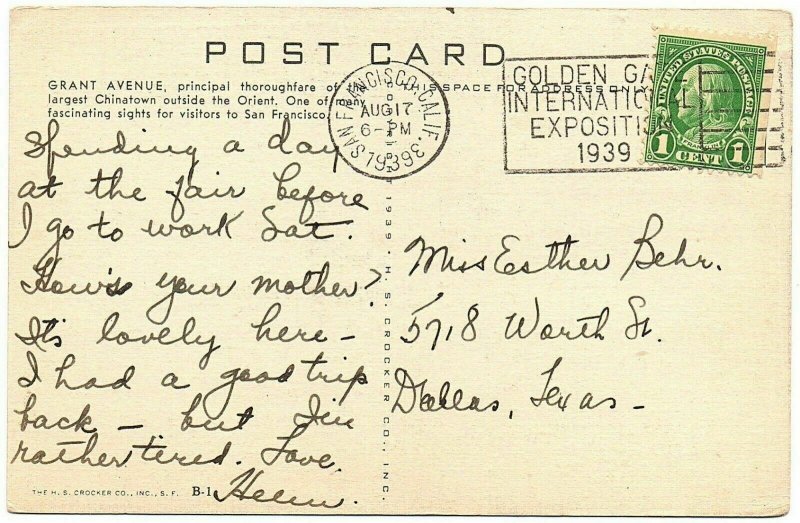 POST CARD
GRANT AVENUE, principal thoroughfare of
largest Chinatown outside the Orient. One of many
fascinating sights for visitors to San Francisco.
SPACE FOR ADDRESS ONLY
SAN FRANCISCO, CALIF.
AUG 17
6-PM
1939
GOLDEN GA
INTERNATIONAL
EXPOSITI
1939
UNITED STATES POSTAGE
FRANKLIN
1 CENT 1
Spending a day
at the fair before
I go to work Sat.
How's your mother?
It's lovely here –
I had a good trip
back – but I'm
rather tired. Love.
Helen.
Miss Esther Behr.
5718 Worth St.
Dallas, Texas –
1939 · H. S. CROCKER CO., INC.
THE H. S. CROCKER CO., INC., S. F. B-1